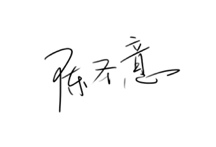 陈不意